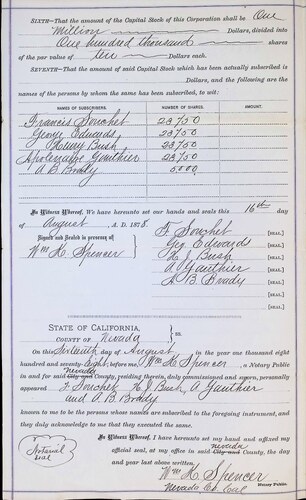 SIXTH—That the amount of the Capital Stock of this Corporation shall be One
Million Dollars, divided into
One hundred thousand shares
of the par value of ten Dollars each.
SEVENTH—That the amount of said Capital Stock which has been actually subscribed is
Dollars, and the following are
the names of the persons by whom the same has been subscribed, to wit:
NAMES OF SUBSCRIBERS. NUMBER OF SHARES. AMOUNT.
Francis Souchet 23750
George Edwards 23750
Henry Bush 23750
Gauthier 23750
A B Brady 5000
In Witness Whereof, We have hereunto set our hands and seals this 16th day
of August A. D. 1878.
Signed and Sealed in presence of
Wm H. Spencer
F Souchet [SEAL.]
Geo Edwards [SEAL.]
H J Bush [SEAL.]
A Gauthier [SEAL.]
A B Brady [SEAL.]
STATE OF CALIFORNIA,
COUNTY OF Nevada } ss.
On this Sixteenth day of August in the year one thousand eight hundred
and seventy Eight, before me, Wm H. Spencer, a Notary Public
in and for said City and Nevada County, residing therein, duly commissioned and sworn, personally
appeared F Souchet H J Bush, A Gauthier
and A B Brady
known to me to be the persons whose names are subscribed to the foregoing instrument, and
they duly acknowledge to me that they executed the same.
Notarial
seal
In Witness Whereof, I have hereunto set my hand and affixed my
official seal, at my office in said City and Nevada County, the day and
year last above written.
Wm H. Spencer
Notary Public.
Nevada Co. Cal